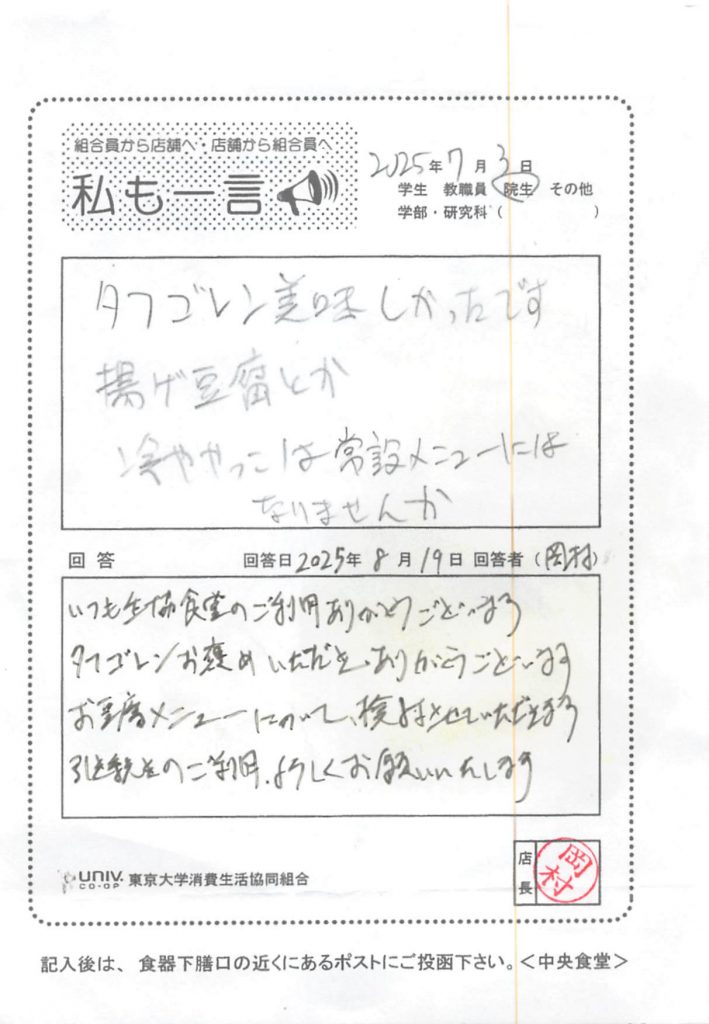 組合員から店舗へ・店舗から組合員へ
私も一言
2025年7月3日
学生 教職員 院生 その他
学部・研究科( )
タフゴレン美味しかったです
揚げ豆腐とか
冷ややっこは常設メニューには
なりませんか
回答 回答日2025年8月19日 回答者(岡村)
いつも生協食堂のご利用ありがとうございます
タフゴレンお褒めいただき、ありがとうございます
お豆腐メニューについて、検討させていただきます
引き続きのご利用、よろしくお願いいたします
店長 岡村
UNIV. CO-OP 東京大学消費生活協同組合
記入後は、食器下膳口の近くにあるポストにご投函下さい。<中央食堂>